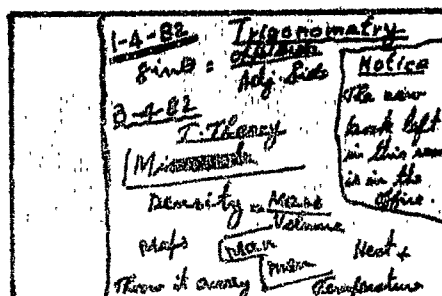 1-4-82 Trigonometry
sinθ = 
Adj. Side
3-4-82
T. Theory
Density = Mass
Volume
Maps
Plan
Heat +
Throw it away
Temperature
Notice
The new
book left
in this room
is in the
office.